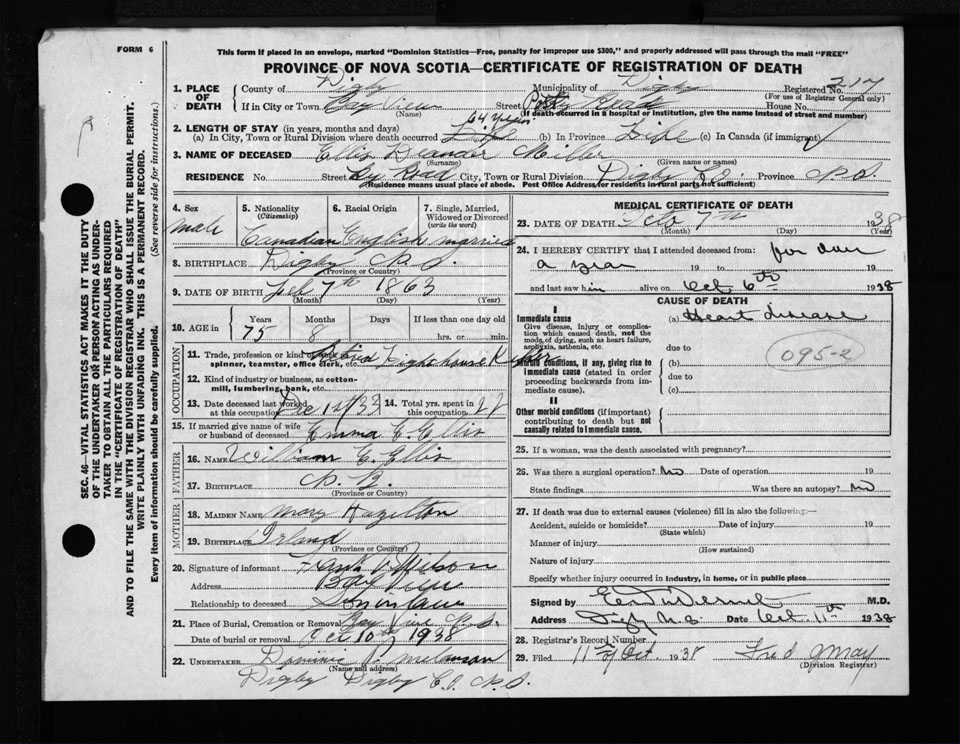 FORM 6
This form if placed in an envelope, marked "Dominion Statistics—Free, penalty for improper use $300," and properly addressed will pass through the mail "FREE"
PROVINCE OF NOVA SCOTIA—CERTIFICATE OF REGISTRATION OF DEATH
SEC. 46—VITAL STATISTICS ACT MAKES IT THE DUTY
OF THE UNDERTAKER OR PERSON ACTING AS UNDER-
TAKER TO OBTAIN ALL THE PARTICULARS REQUIRED
IN THE "CERTIFICATE OF REGISTRATION OF DEATH"
AND TO FILE THE SAME WITH THE DIVISION REGISTRAR WHO SHALL ISSUE THE BURIAL PERMIT.
WRITE PLAINLY WITH UNFADING INK. THIS IS A PERMANENT RECORD.
Every item of information should be carefully supplied. (See reverse side for instructions.)
1. PLACE OF DEATH
County of Digby Municipality of Digby Registered No. 217
(For use of Registrar General only)
If in City or Town Bay View Street Road House No.
(Name) (If death occurred in a hospital or institution, give the name instead of street and number)
2. LENGTH OF STAY (in years, months and days) 64 years
(a) In City, Town or Rural Division where death occurred Life (b) In Province Life (c) In Canada (if immigrant)
3. NAME OF DECEASED Ellis Miller
(Surname) (Given name or names)
RESIDENCE No. Street Road City, Town or Rural Division Digby Co. Province N.S.
(Residence means usual place of abode. Post Office Address for residents in rural parts not sufficient)
4. Sex 5. Nationality 6. Racial Origin 7. Single, Married,
(Citizenship) Widowed or Divorced
(write the word)
Male Canadian English married
8. BIRTHPLACE Digby N.S.
(Province or Country)
9. DATE OF BIRTH Feb 7th 1863
(Month) (Day) (Year)
10. AGE in Years Months Days If less than one day old
75 8 hrs. or min.
OCCUPATION
11. Trade, profession or kind Retired Lighthouse Keeper
spinner, teamster, office clerk, etc.
12. Kind of industry or business, as cotton-
mill, lumbering, bank, etc.
13. Date deceased last worked at this occupation Dec 1st/33 14. Total yrs. spent in this occupation 22
15. If married give name of wife
or husband of deceased Emma E. Ellis
FATHER
16. NAME William E. Ellis
17. BIRTHPLACE N.B.
(Province or Country)
MOTHER
18. MAIDEN NAME Mary Hazelton
19. BIRTHPLACE Irland
(Province or Country)
20. Signature of informant Frank V. Wilson
Address Bay View
Relationship to deceased Son in law
21. Place of Burial, Cremation or Removal Bay View N.S.
Date of burial or removal Oct 10th 1938
22. UNDERTAKER Dominic Melanson
(Name and address)
Digby Digby Co. N.S.
MEDICAL CERTIFICATE OF DEATH
23. DATE OF DEATH Oct 7th 1938
(Month) (Day) (Year)
24. I HEREBY CERTIFY that I attended deceased from: for over
a year 19 to 19
and last saw him alive on Oct 6th 1938
CAUSE OF DEATH
I
Immediate cause (a) Heart disease
Give disease, injury or complica-
tion which caused death, not the
mode of dying, such as heart failure,
asphyxia, asthenia, etc. due to
095-2
Morbid conditions, if any, giving rise to (b)
immediate cause (stated in order
proceeding backwards from im- due to
mediate cause). (c)
II
Other morbid conditions (if important)
contributing to death but not
causally related to immediate cause.
25. If a woman, was the death associated with pregnancy?
26. Was there a surgical operation? No Date of operation 19
State findings Was there an autopsy? No
27. If death was due to external causes (violence) fill in also the following:—
Accident, suicide or homicide? Date of injury 19
(State which)
Manner of injury
(How sustained)
Nature of injury
Specify whether injury occurred in industry, in home, or in public place
Signed by M.D.
Address Digby N.S. Date Oct 11th 1938
28. Registrar's Record Number
29. Filed 11 of Oct 1938 Fred May
(Division Registrar)